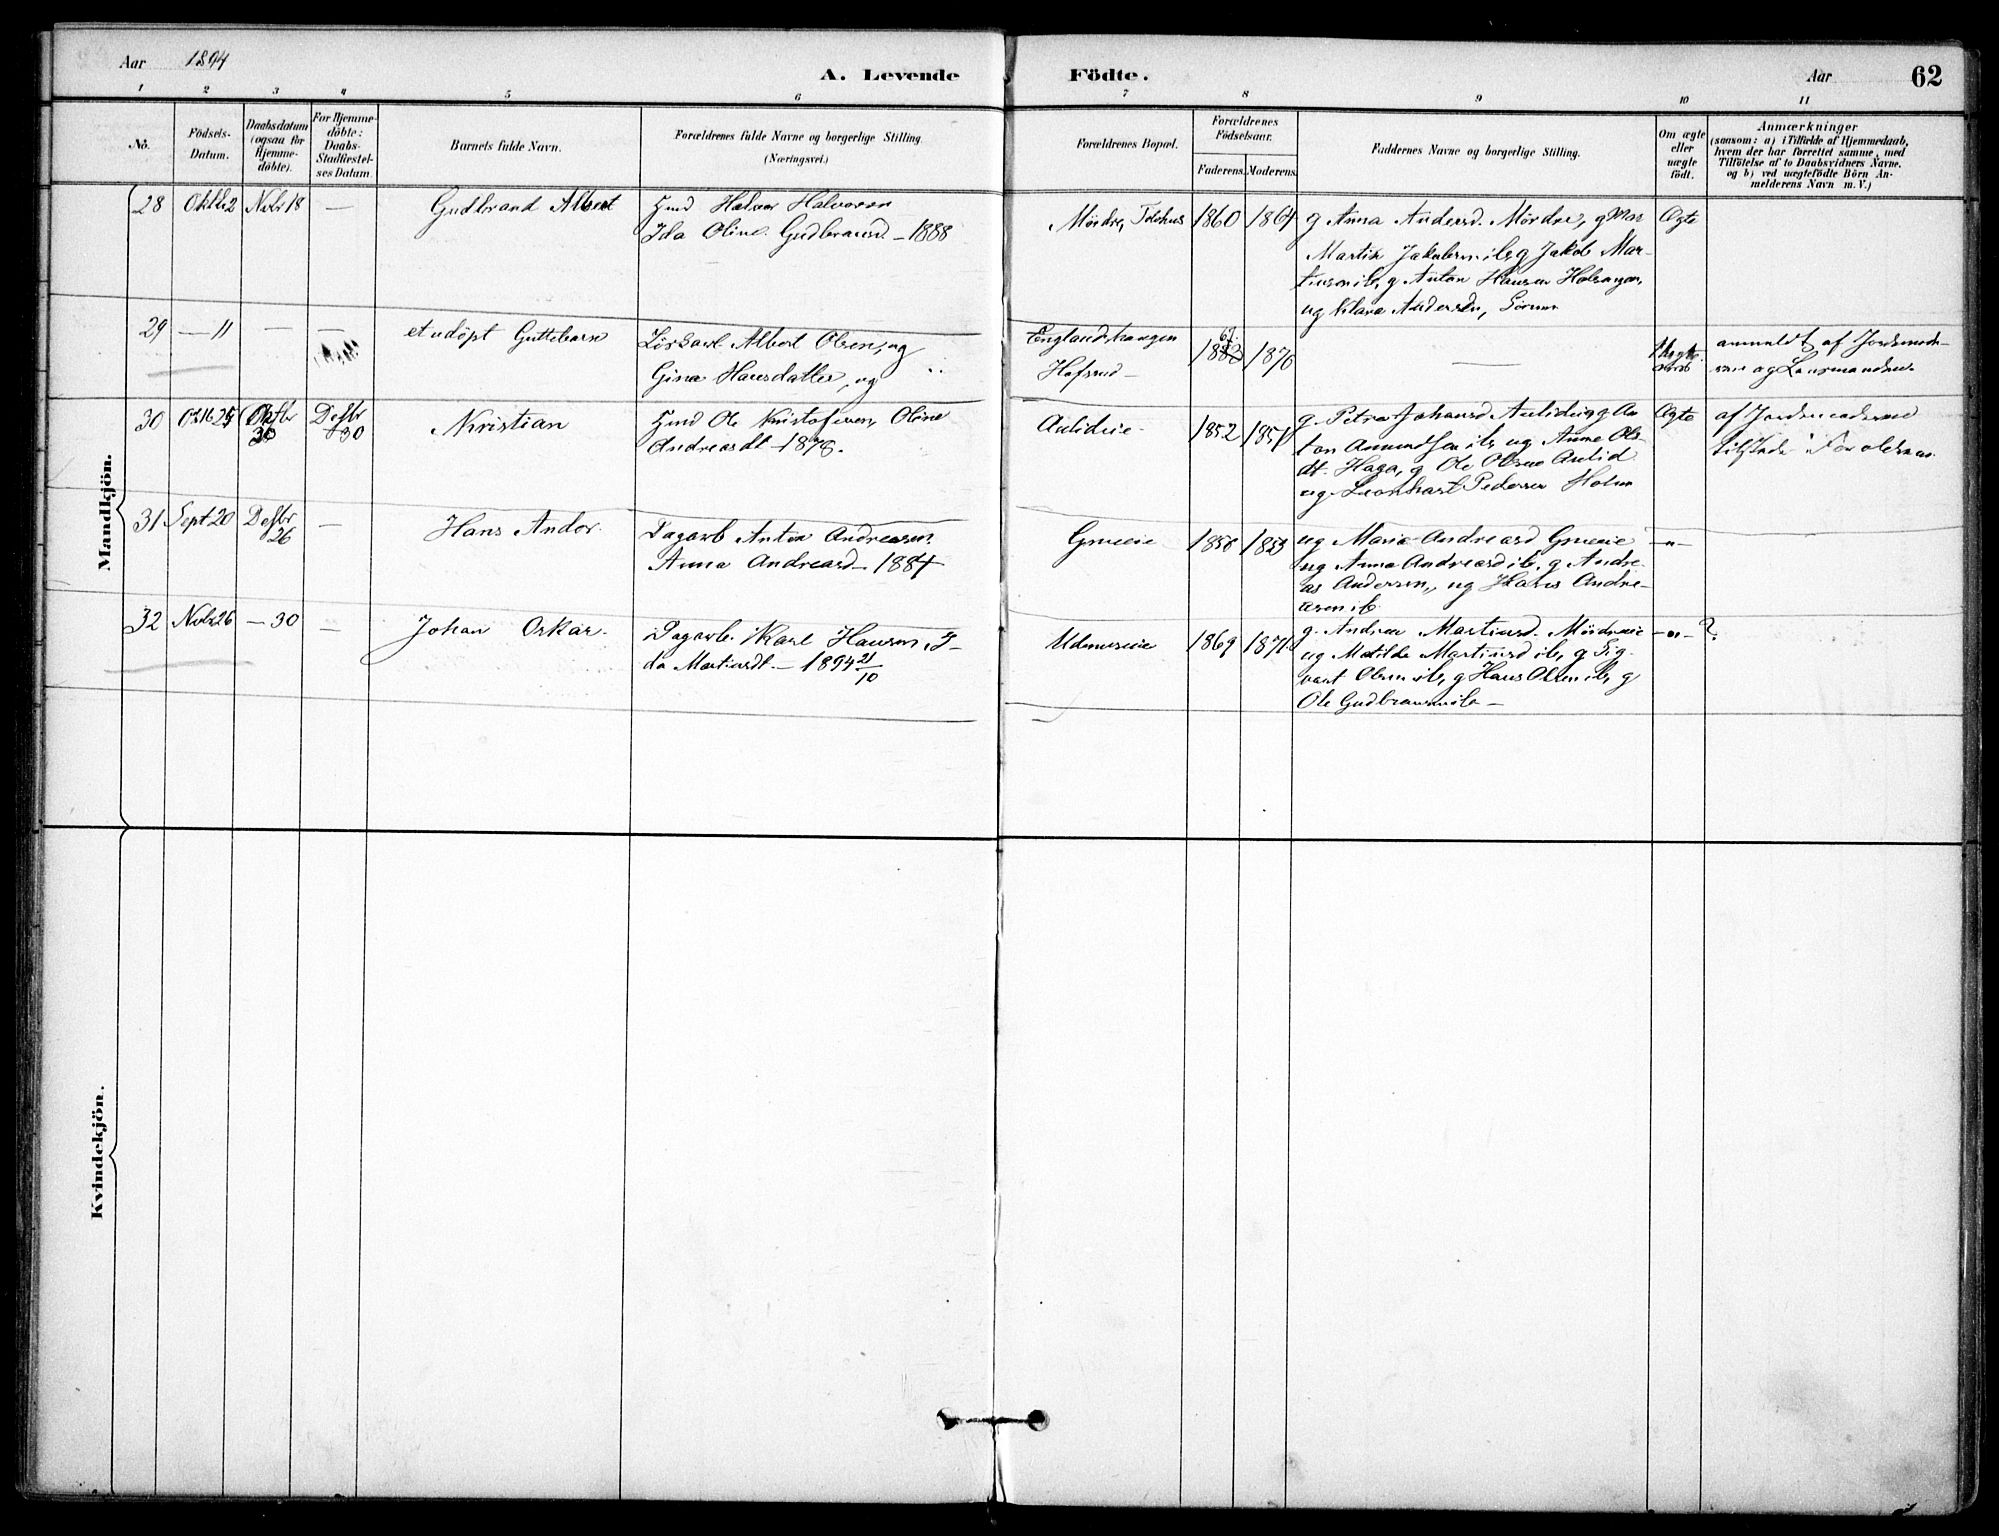 Aar 1894
A. Levende
Födte.
Aar
62
1 2 3 4 5 6 7 8 9 10 11
No.
Födsels-
Datum.
Daabsdatum
(ogsaa for
Hjemme-
döbte).
For Hjemme-
döbte:
Daabs-
Stadfæstel-
ses Datum.
Barnets fulde Navn.
Forældrenes fulde Navne og borgerlige Stilling.
(Næringsvei.)
Forældrenes Bopæl.
Forældrenes
Födselsaar.
Faderens. Moderens.
Faddernes Navne og borgerlige Stilling.
Om ægte
eller
uægte
födt.
Anmærkninger
(saasom: a) i Tilfælde af Hjemmedaab,
hvem der har forrettet samme, med
Tilföielse af to Daabsvidners Navne,
og b) ved uægtefödte Börn An-
melderens Navn m. V.)
Mandkjön.
28 Oktbr 2 Nvbr 18 — Gudbrand Albert
Hmd Halvor Halvorsen
Ida Oline Gudbrandsd. — 1888
Mördre, 1860 1864
g Anna Andersd. Mördre, g
Martin Jakobsen ib, g Jakob Mar-
tinsen ib, g Anton Hansen
ug Klara Andersdn, Sörum
Ægte
29 — 11 — — et udöpt Guttebarn
Albert Olsen, ug
Gina Hansdatter, ug
Englandshaugen
Hofsrud —
1882 62 1870
—
Uægte
anmeldt af Jordmod-
ren og Lensmanden
30 Oktb 25 Desbr
30 Desbr
30 Kristian
Hmd Ole Kristofersen, Oline
Andreasdt — 1876.
Aulideie 1852 1851
g. Petra Johansd Aulideie, g An-
ton Amundsen ib, ug Anne Ols-
dt. Haga, g Ole Olsen Aulid
ug Leonhart Pedersen Holm
Ægte
af Jordmoderen
tilstede Foreldrene
31 Sept 20 Desbr
26 — Hans Andor.
Dagarb Anton Andreasen
Anna Andreasd — 1884
Grueeie 1858 1853
ug Maria Andreasd Grueeie
ug Anna Andreasd ib, g Andre-
as Andersen, ug Hans Andre-
asen ib.
—"—
32 Nvbr 26 — 30 — Johan Oskar.
Dagarb. Karl Hansen, I-
da Martinsdt. — 1894 21/10
Udneseie 1869 1871
g. Andrea Martinsd. Mördreeie
ug Matilde Martinsd ib, g Sig-
vart Olsen ib, g Hans Olsen ib, g
Ole Gudbransen ib —
—"— ?
Kvindekjön.